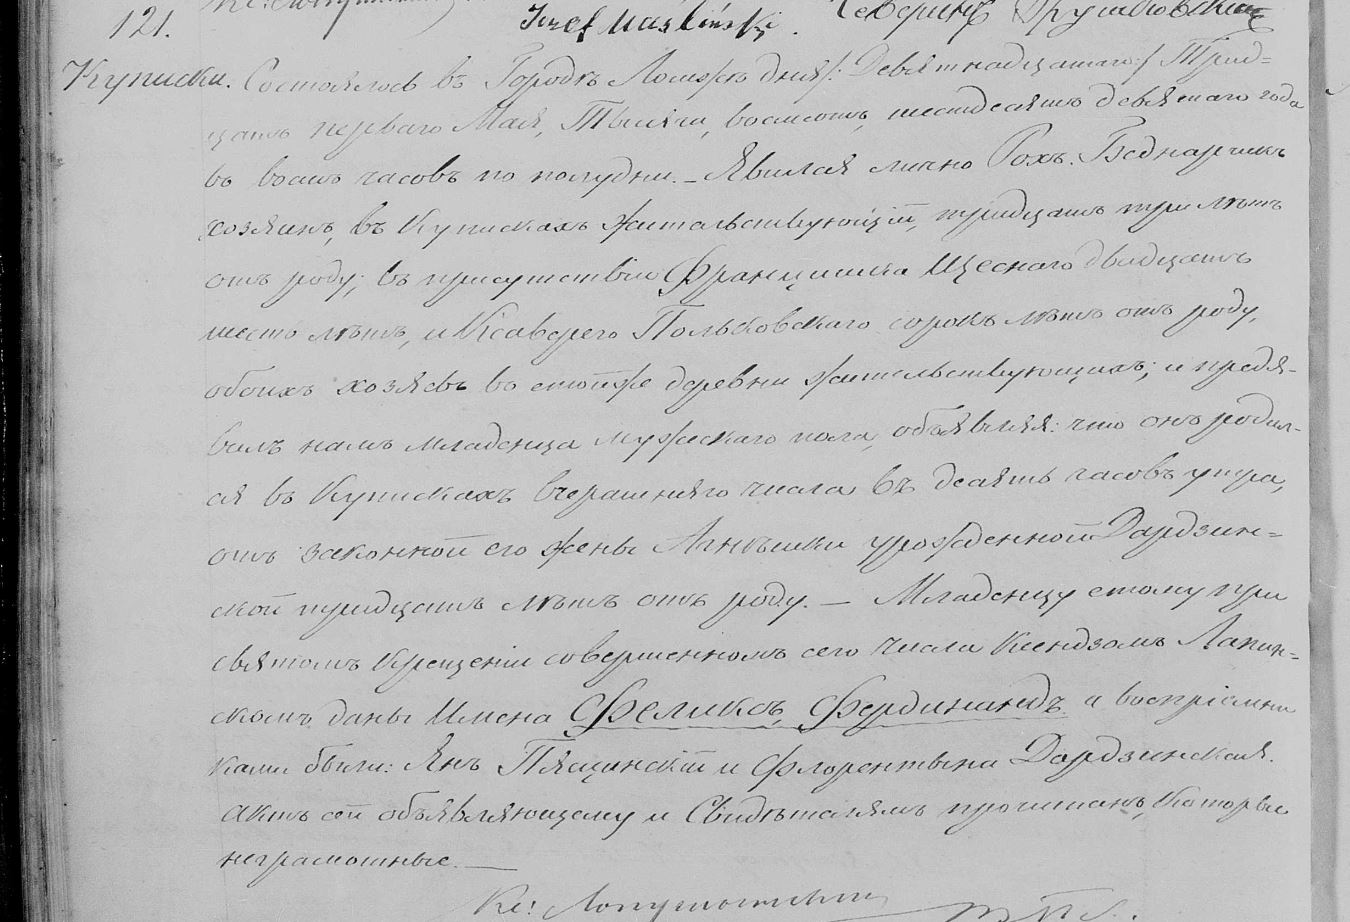 121.
Józef Mus
Куписки. Состоялось въ Городѣ Ломжѣ дня /: Девятнадцатаго :/ Трид=
цать перваго Мая, Тысяча, восемсотъ, шестдесятъ девятаго года
въ восмь часовъ по полудни. – Явился лично Рохъ Беднарчикъ
хозяинъ, въ Купискахъ жительствующій, тридцать три лѣтъ
отъ роду; въ присутствіи Францишка Щеснаго двадцать
шесть лѣтъ, и Ксаверего Польковскаго сорокъ лѣтъ отъ роду,
обоихъ хозяевъ въ стойже деревни жительствующихъ; и предя-
вилъ намъ младенца мужескаго пола, объявляя: что онъ родил-
ся въ Купискахъ вчерашняго числа въ десять часовъ утра,
отъ законной его жены Агнѣшки урожденной Дардзин=
ской тридцать лѣтъ отъ роду. – Младенцу етому при
святомъ крещеніи совершенномъ сего числа Ксендзомъ Лапин=
скомъ, даны имена Феликсъ, Фердинандъ а воспріемни
ками были: Янъ Пясцинскій и Флорентына Дардзинская.
актъ сей объявляющему и Свидѣтелямъ прочитанъ, которые
неграмотные. —
Кс: